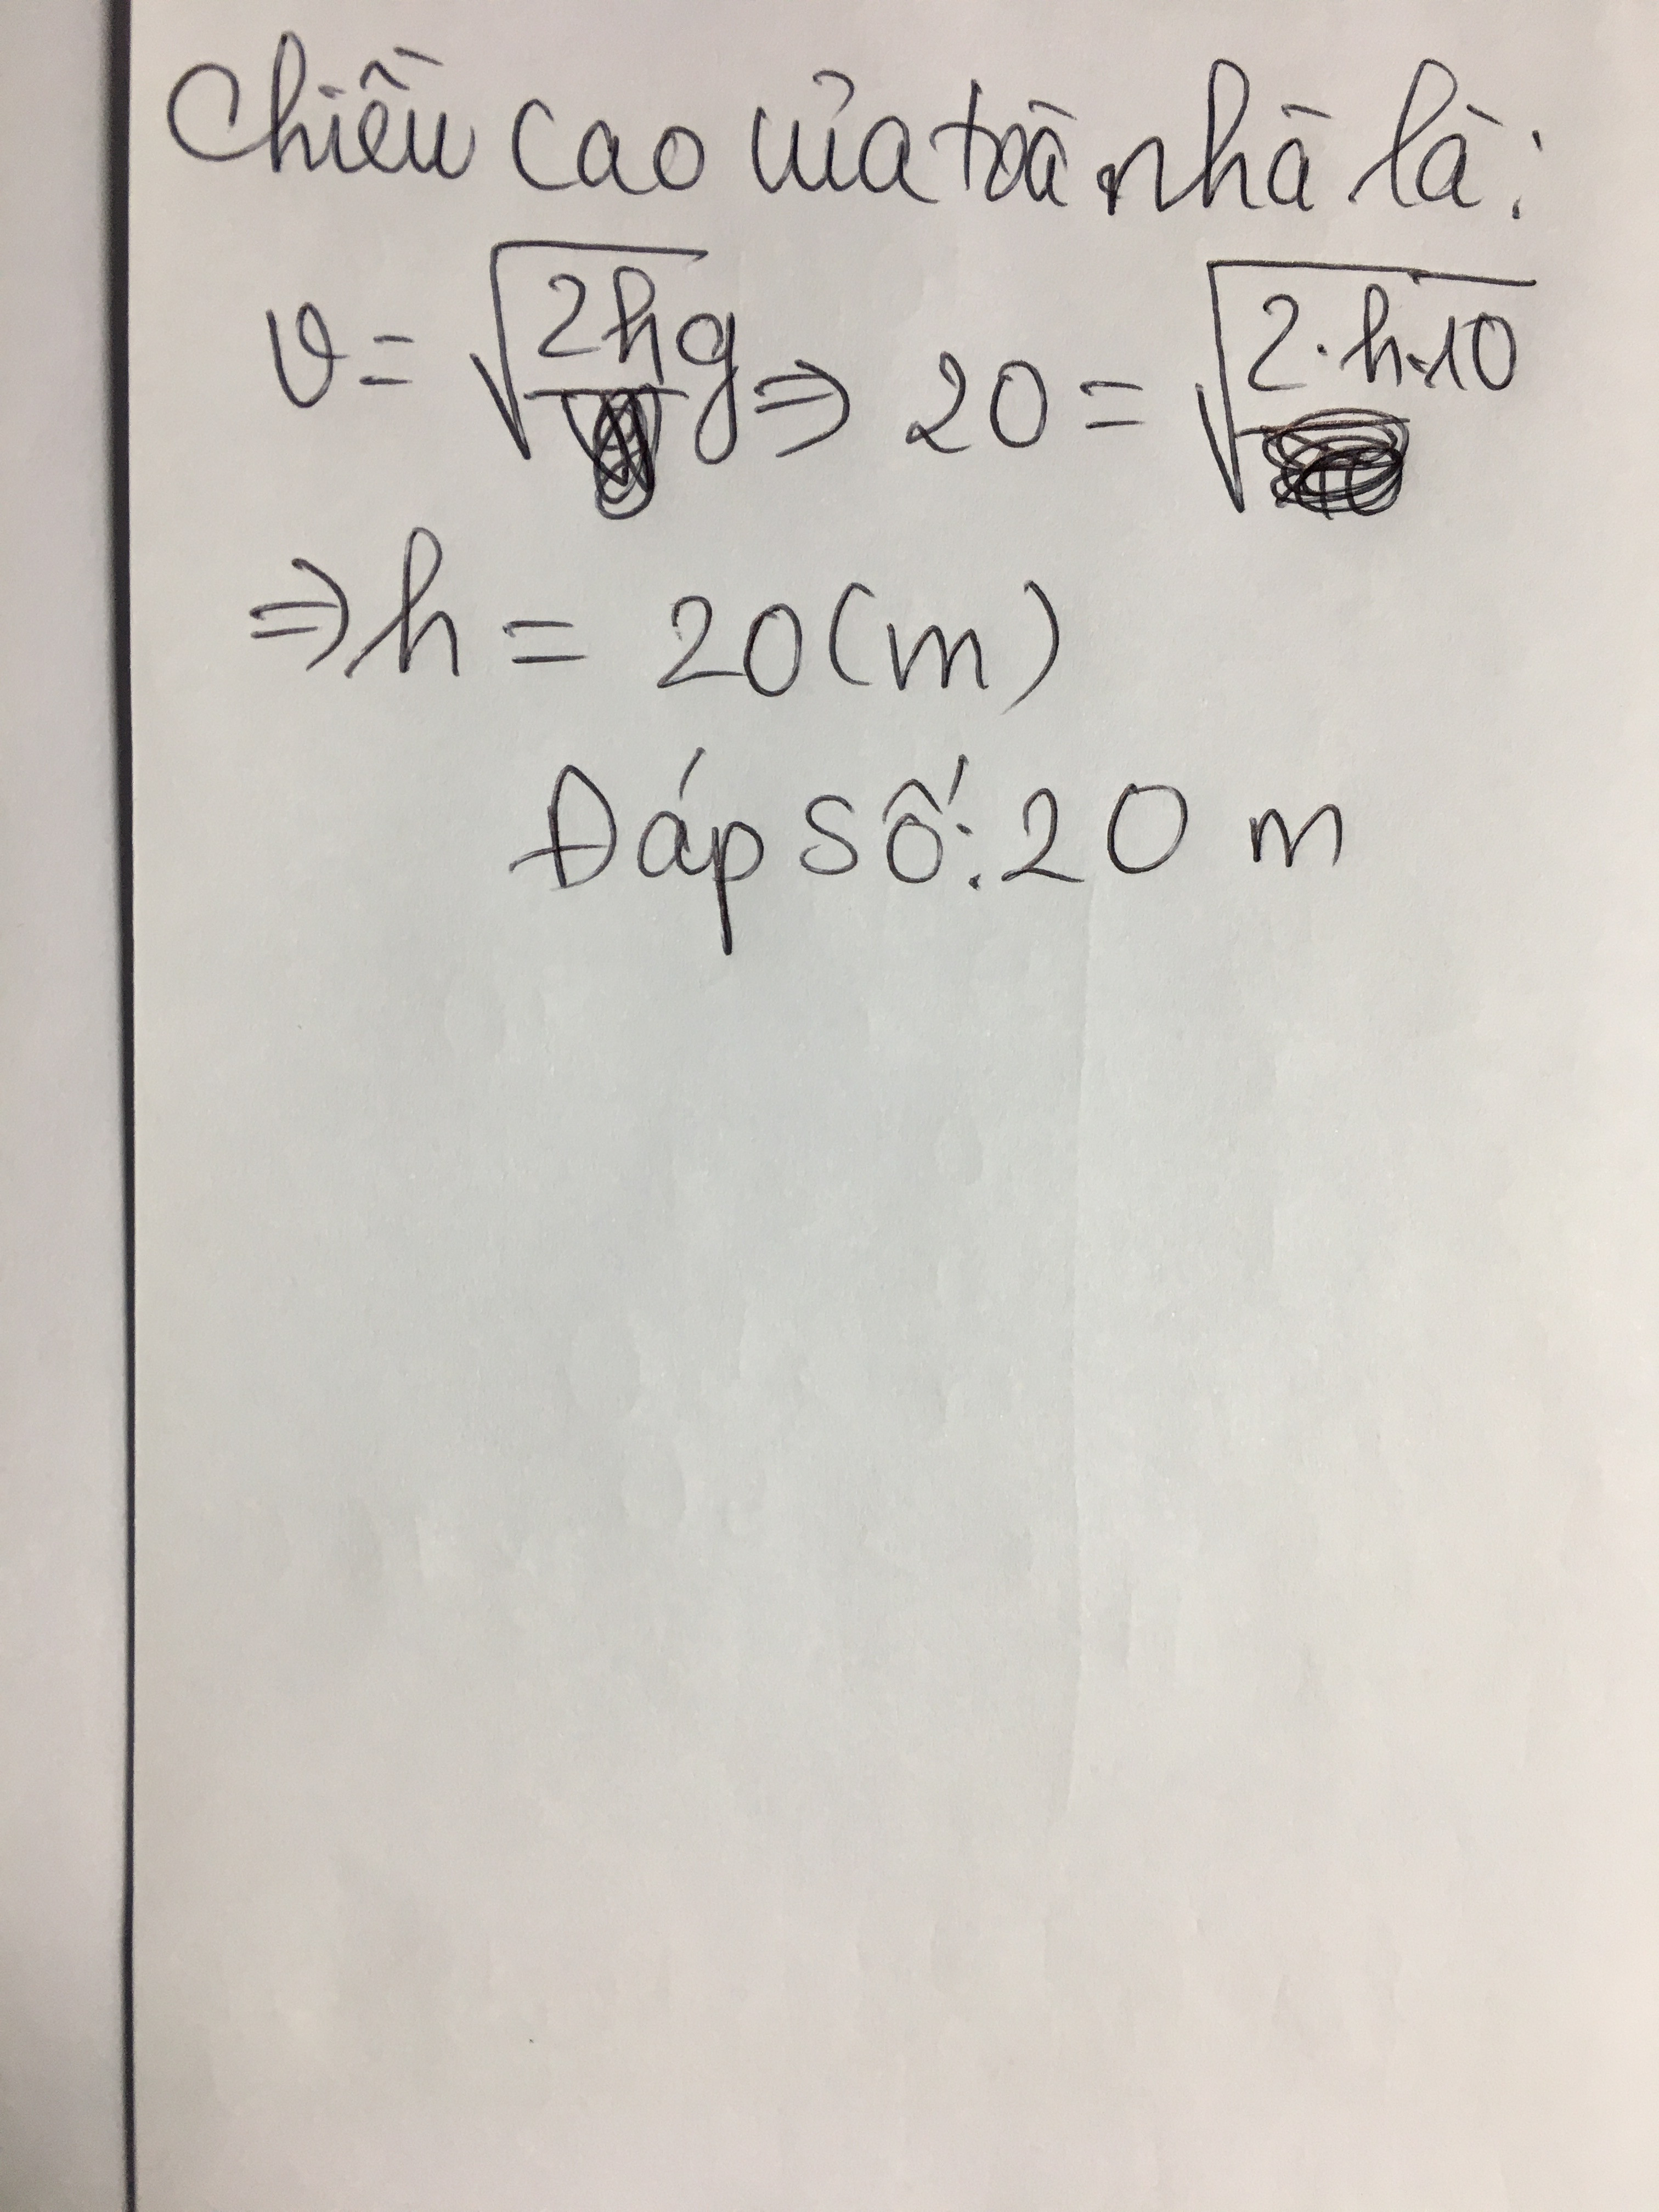 Chiều cao của toà nhà là:
v = √2hg ⇒ 20 = √2.h.10
⇒ h = 20 (m)
Đáp số: 20 m